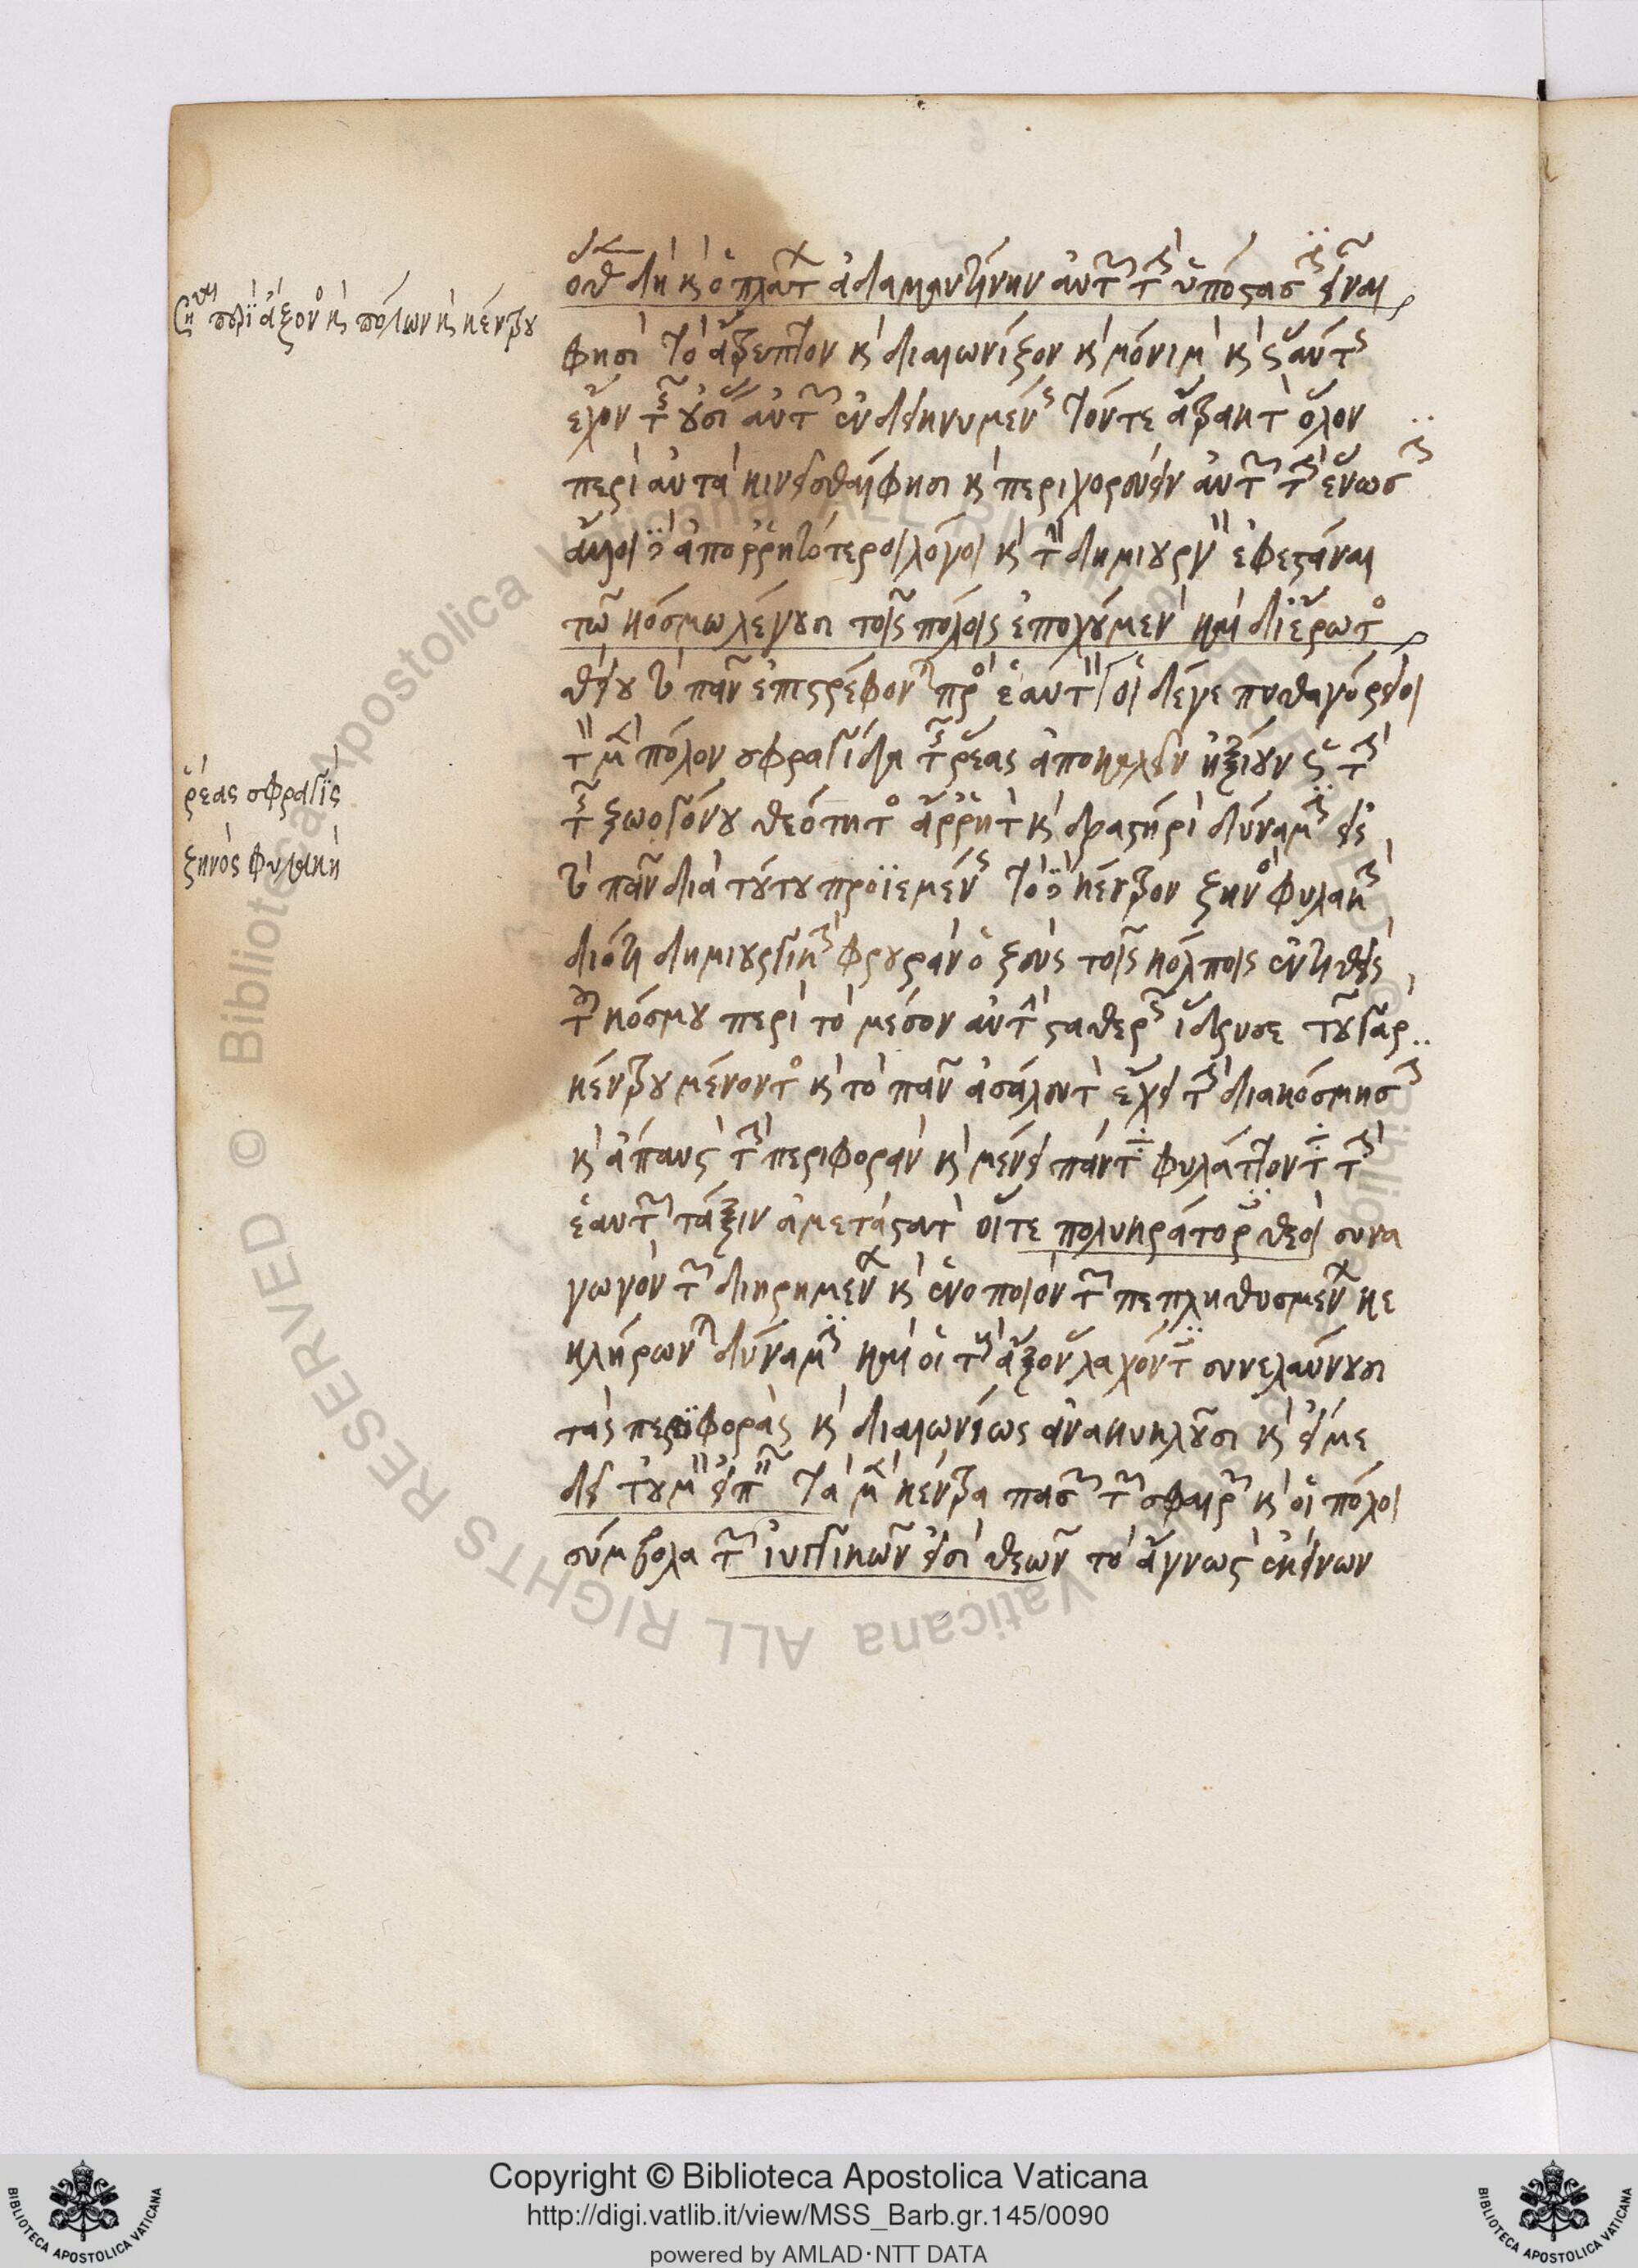 ὅθεν δὴ καὶ ὁ πλάτων ἀδαμαντίνην αὐτῶν τὴν ὑπόστασιν εἶναι
φησι τὸ ἄτρεπτον καὶ διαιώνιζον καὶ μόνιμον καὶ ὡσαύτως
ἔχον τῆς οὐσίας αὐτῶν ἐνδεικνύμενος τόν τε ἄτρακτον ὅλον
περὶ αὐτὰ κινεῖσθαί φησι καὶ περιχορεύειν αὐτῶν τὴν ἕνωσιν
ἄλλοι δὲ ἀπορρητότεροι λόγοι καὶ τὸν δημιουργὸν ἐφεστάναι
τῷ κόσμῳ λέγουσι τοῖς πόλοις ἐποχούμενον καὶ δι ἔρωτος
θείου τὸ πᾶν ἐπιστρέφοντα πρὸς ἑαυτὸν οἱ δέ γε πυθαγόρειοι
τὸν μὲν πόλον σφραγίδα τῆς ῥέας ἀποκαλεῖν ἠξίουν ὡς τὴν
τῆς ζωογόνου θεότητος ἄρρητον καὶ δραστήριον δύναμιν εἰς
τὸ πᾶν διὰ τούτου προϊεμένης τὸ δὲ κέντρον ζηνὸς φυλακὴν
διότι δημιουργικὴν φρουρὰν ὁ ζεὺς τοῖς κόλποις ἐντιθεὶς
τοῦ κόσμου περὶ τὸ μέσον αὐτὸν σταθερῶς ἵδρυσε τοῦ γὰρ
κέντρου μένοντος καὶ τὸ πᾶν ἀσάλευτον ἔχει τὴν διακόσμησιν
καὶ ἄπαυστον τὴν περιφορὰν καὶ μένει πάντα φυλάττοντα τὴν
ἑαυτῶν τάξιν ἀμετάστατον οἵ τε πολυκράτορες θεοὶ συνα
γωγὸν τῶν διῃρημένων καὶ ἑνοποιὸν τῶν πεπληθυσμένων κε
κλήρωνται δύναμιν καὶ οἱ τὸν ἄξονα λαχόντες συνελαύνουσι
τὰς περιφορὰς καὶ διαιωνίως ἀνακυκλοῦσι καὶ εἴ με
δεῖ τοὐμὸν εἰπεῖν τὰ μὲν κέντρα πασῶν τῶν σφαιρῶν καὶ οἱ πόλοι
σύμβολα τῶν ἰυγγικῶν εἰσὶ θεῶν τὸ ἄγνωστον ἐκείνων
περὶ ἄξονος καὶ πόλων καὶ κέντρου
ῥέας σφραγίς
ζηνὸς φυλακή
Copyright © Biblioteca Apostolica Vaticana
http://digi.vatlib.it/view/MSS_Barb.gr.145/0090
powered by AMLAD·NTT DATA
BIBLIOTECA APOSTOLICA VATICANA
BIBLIOTECA APOSTOLICA VATICANA
Biblioteca Apostolica Vaticana ALL RIGHTS RESERVED ©